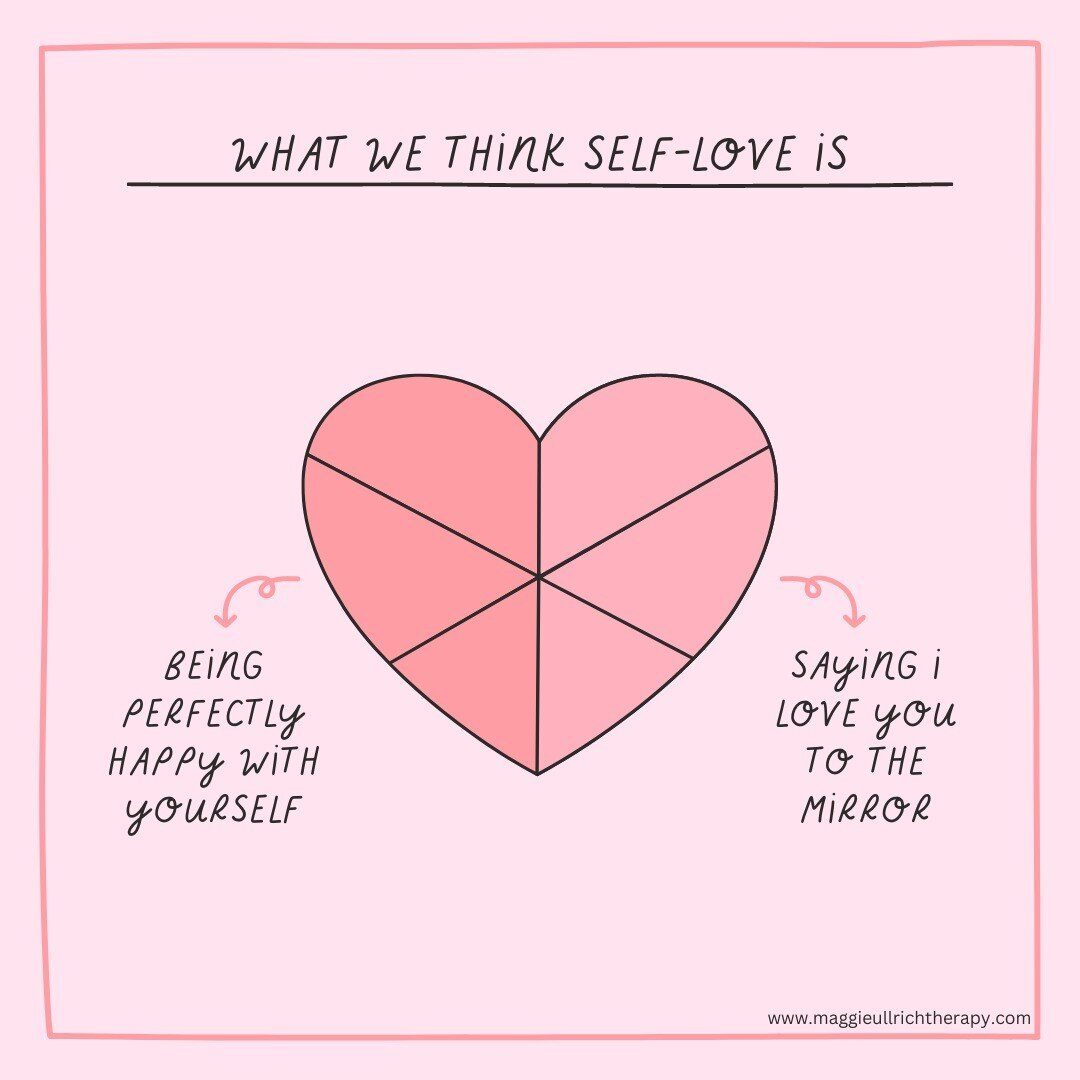 WHAT WE THiNK SELF-LOVE iS
BEiNG
PERFECTLy
HAPPy WiTH
yOURSELF
SAyiNG i
LOVE yOU
TO THE
MiRROR
www.maggieullrichtherapy.com